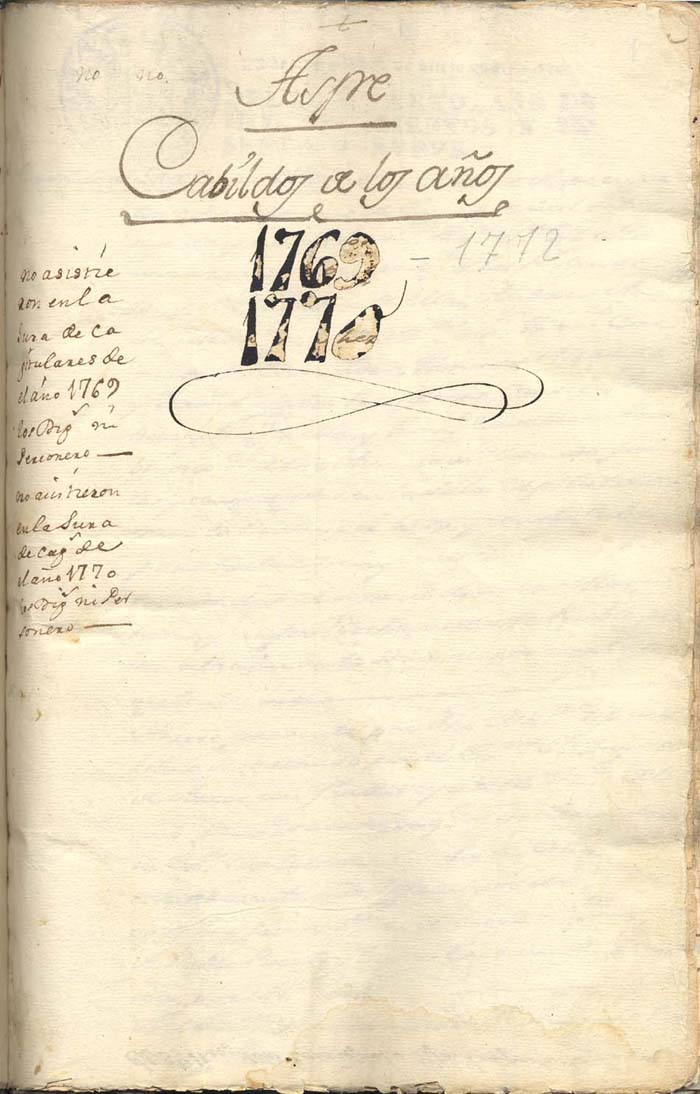 no no.
Aspe
Cabildos de los años
1769 - 1772
1770
no asistie
ron en la
Jura de Ca
pitulares de
el año 1769
los Dip.s ni
Personero —
no asistieron
en la Jura
de cap.s de
el año 1770
los Dip.s ni Per
sonero —